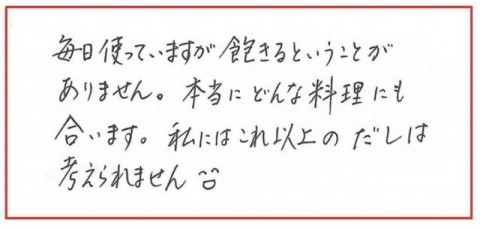 毎日使っていますが飽きるということが
ありません。本当にどんな料理にも
合います。私にはこれ以上のだしは
考えられません